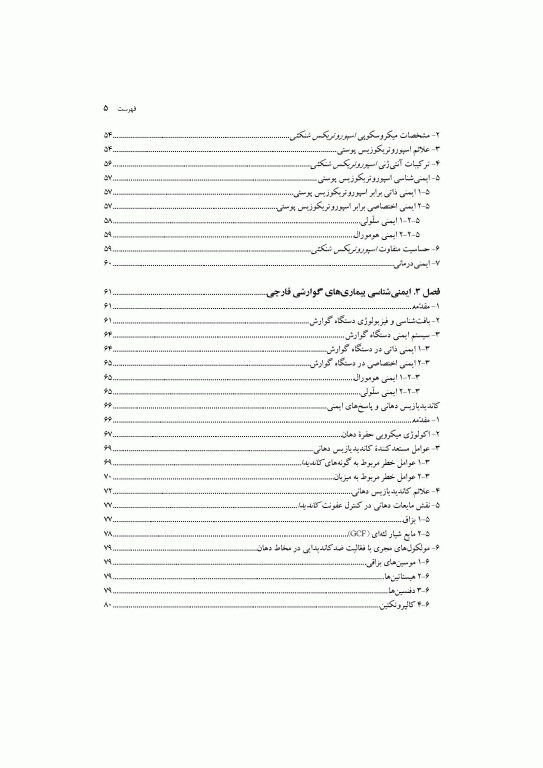 فهرست ۵
۲- مشخصات میکروسکوپی اسپوروتریکس شنکئی ۵۴
۳- علائم اسپوروتریکوزیس پوستی ۵۴
۴- ترکیبات آنتی‌ژنی اسپوروتریکس شنکئی ۵۶
۵- ایمنی‌شناسی اسپوروتریکوزیس پوستی ۵۷
۱-۵ ایمنی ذاتی برابر اسپوروتریکوزیس پوستی ۵۷
۲-۵ ایمنی اختصاصی برابر اسپوروتریکوزیس پوستی ۵۷
۱-۲-۵ ایمنی سلّولی ۵۸
۲-۲-۵ ایمنی هومورال ۵۹
۶- حساسیت متفاوت اسپوروتریکس شنکئی ۵۹
۷- ایمنی‌درمانی ۶۰
فصل ۳. ایمنی‌شناسی بیماری‌های گوارشی قارچی ۶۱
۱- مقدّمه ۶۱
۲- بافت‌شناسی و فیزیولوژی دستگاه گوارش ۶۱
۳- سیستم ایمنی دستگاه گوارش ۶۴
۱-۳ ایمنی ذاتی در دستگاه گوارش ۶۴
۲-۳ ایمنی اختصاصی در دستگاه گوارش ۶۵
۱-۲-۳ ایمنی هومورال ۶۵
۲-۲-۳ ایمنی سلّولی ۶۵
کاندیدیازیس دهانی و پاسخ‌های ایمنی ۶۶
۱- مقدّمه ۶۶
۲- اکولوژی میکروبی حفرهٔ دهان ۶۷
۳- عوامل مستعدکنندهٔ کاندیدیازیس دهانی ۶۹
۱-۳ عوامل خطر مربوط به گونه‌های کاندیدا ۶۹
۲-۳ عوامل خطر مربوط به میزبان ۷۰
۴- علائم کاندیدیازیس دهانی ۷۲
۵- نقش مایعات دهانی در کنترل عفونت کاندیدا ۷۷
۱-۵ بزاق ۷۷
۲-۵ مایع شیار لثه‌ای (GCF) ۷۸
۶- مولکول‌های مجری با فعّالیت ضدکاندیدایی در مخاط دهان ۷۹
۱-۶ موسین‌های بزاقی ۷۹
۲-۶ هیستاتین‌ها ۷۹
۳-۶ دفنسین‌ها ۷۹
۴-۶ کالپروتکتین ۸۰